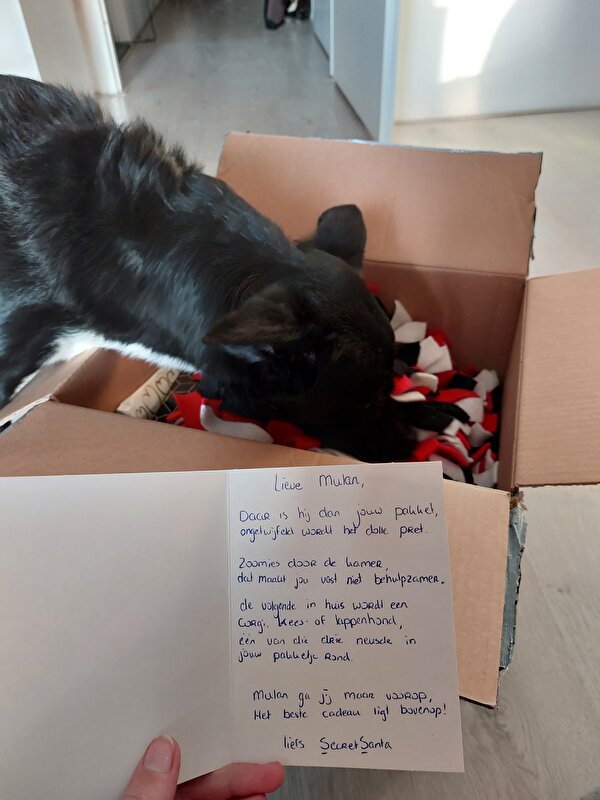 Lieve Mulan,
Daar is hij dan jouw pakket,
ongetwijfeld wordt het dolle pret.
Zoomies door de kamer,
dat maakt jou vast niet behulpzamer.
de volgende in huis wordt een
corgi, Kees- of lappenhond,
één van die drie neusde in
jouw pakketje rond.
Mulan ga jij maar voorop,
Het beste cadeau ligt bovenop!
liefs Secret Santa